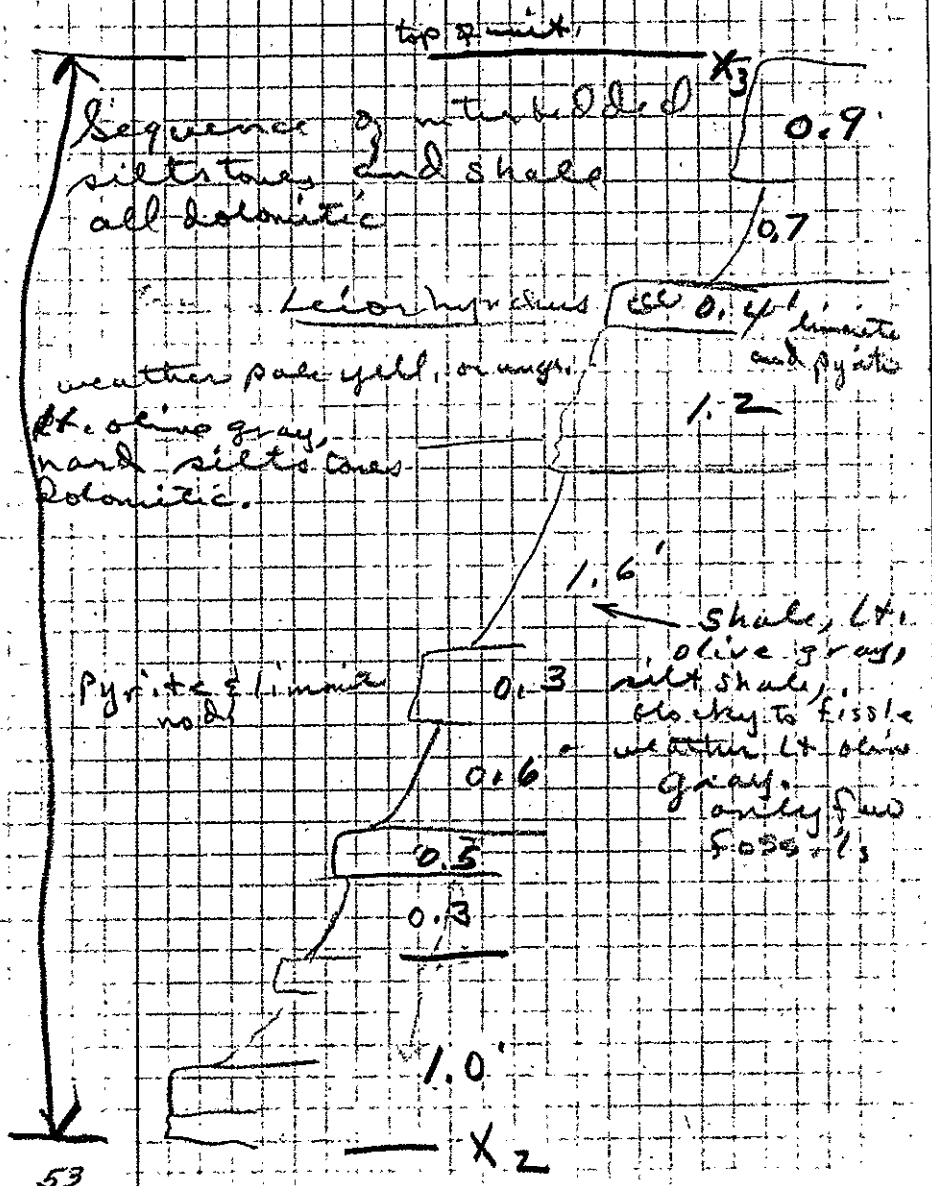 top of unit.
X3
Sequence of interbedded
siltstones and shale
all dolomitic
0.9'
0.7
Leiorhynchus
0.4' limonite
and pyrite
weather pale yell. orange.
lt. olive gray,
hard siltstones
dolomitic.
1.2
1.6'
Shale, lt.
olive gray,
silt shale,
blocky to fissle
weather lt olive
gray.
only few
fossils
Pyrite & limonite
nod
0.3
0.6
0.5
0.3
1.0'
X2
53